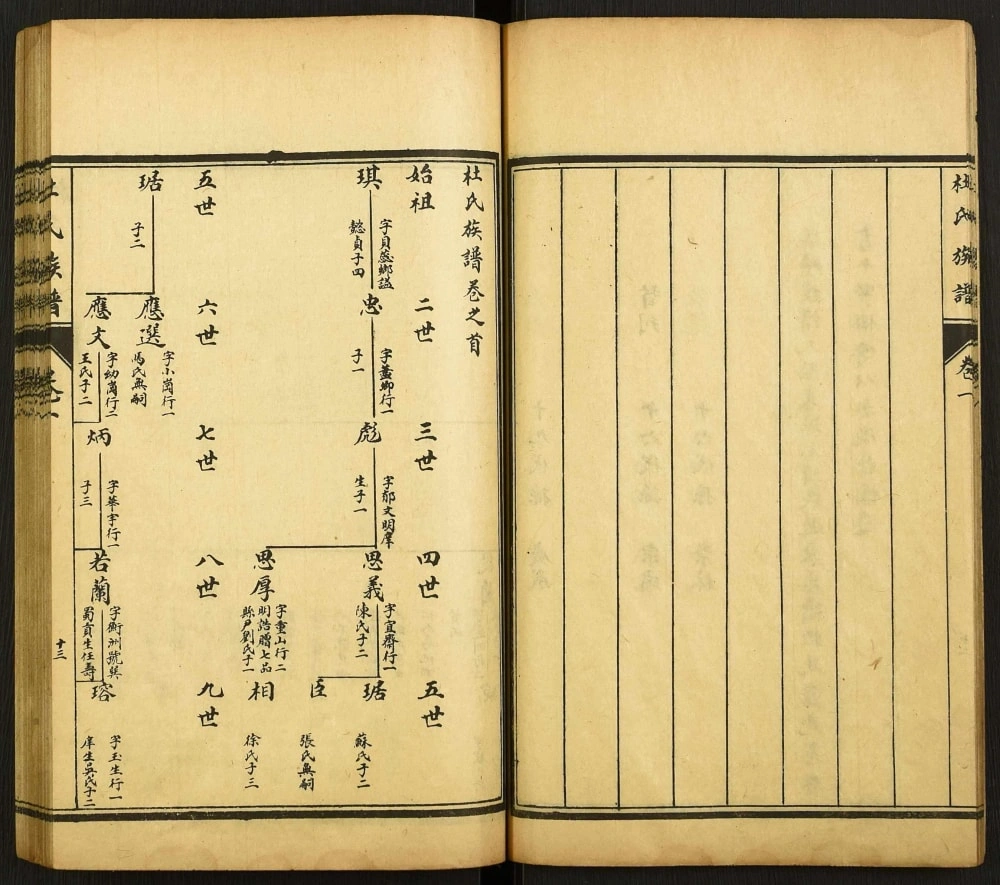 杜氏族譜
卷一
杜氏族譜卷之首
始祖
二世
三世
四世
五世
琪
懿貞子四
忠
字藎卿行一
子一
彪
字郁文明庠
生子一
思義
字宜齋行一
陳氏子二
琚
蘇氏子二
臣
張氏無嗣
思厚
字重山行二
明誥贈七品
縣尹劉氏子一
相
徐氏子三
五世
六世
七世
八世
九世
琚
子二
應選
字小崗行一
馮氏無嗣
應文
字幼崗行二
王氏子二
炳
字華宇行一
子三
若蘭
字衡洲號
貢生任壽
瑢
字玉生行一
庠生吳氏子二
杜氏族譜
卷一
十三